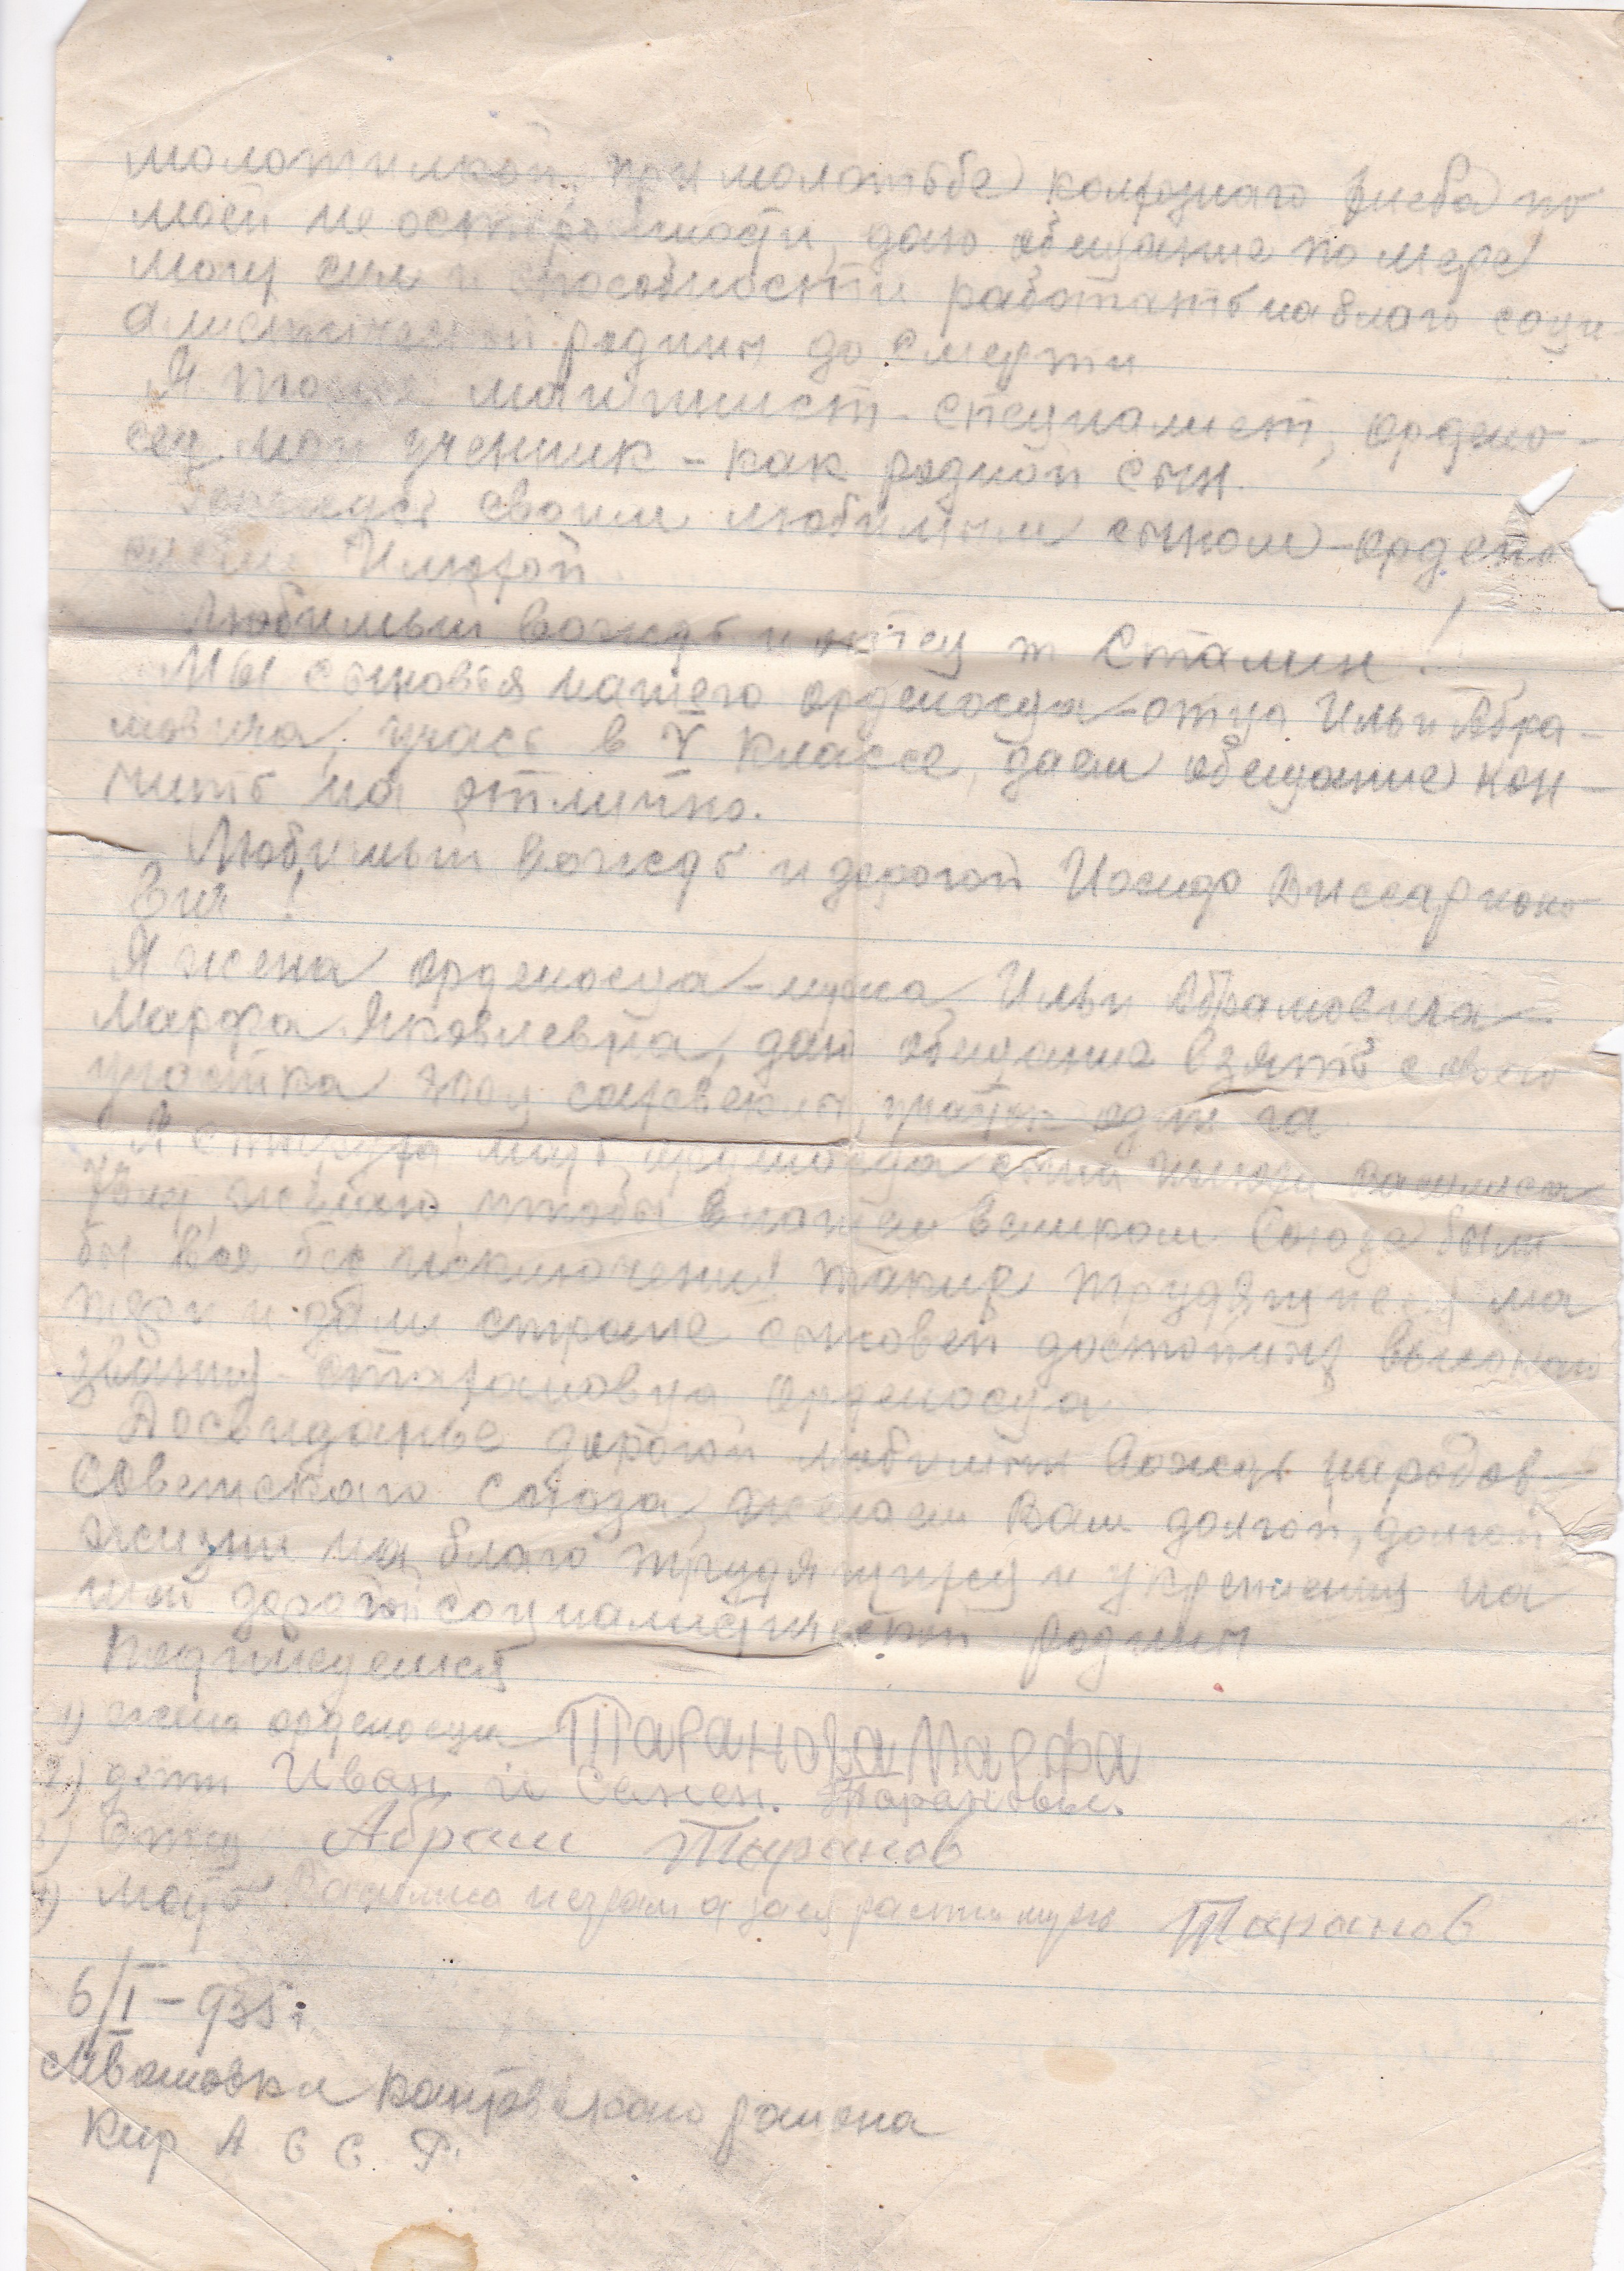 молотилкой, при молотьбе колхозного хлеба по
моей не осторожности, даю обещание по мере
могу сил и способности работать на благо соци
алистической родины до смерти
Я тоже машинист-специалист, ордено-
сец мой ученик – как родной сын.
своим любимым сыном-ордено
Илюхой
Любимый вождь и отец т Сталин!
Мы сыновья нашего орденосца-отца Ильи Абра-
мовича, учась в V классе, даем обещание кон-
чить на отлично.
Любимый вождь и дорогой Иосиф Виссарионо
Вич!
Я жена орденосца-мужа Ильи Абрамовича-
Марфа Яковлевна, даю обещание взять с своего
участка сахсвеклы, один га
Я старуха мать орденосца сына
желаю, чтобы в нашем великом Союзе были
бы все без исключения такие трудящиеся ма
тери и дали стране сыновей достойных
звания – стахановца орденосца
Досвиданье дорогой любимый вождь народов
Советского Союза, желаем Вам долгой, долгой
жизни на благо трудящихся и укрепления на
шей дорогой социалистической родины
Подписуемся
1) жена орденосца Таранова Марфа
2) дети Иван и Семен. Тарановы.
3) Отец Абрам Таранов
4) мать Василиса Таранов
6/I – 935г
Ивановка района
Кир А С С Р.